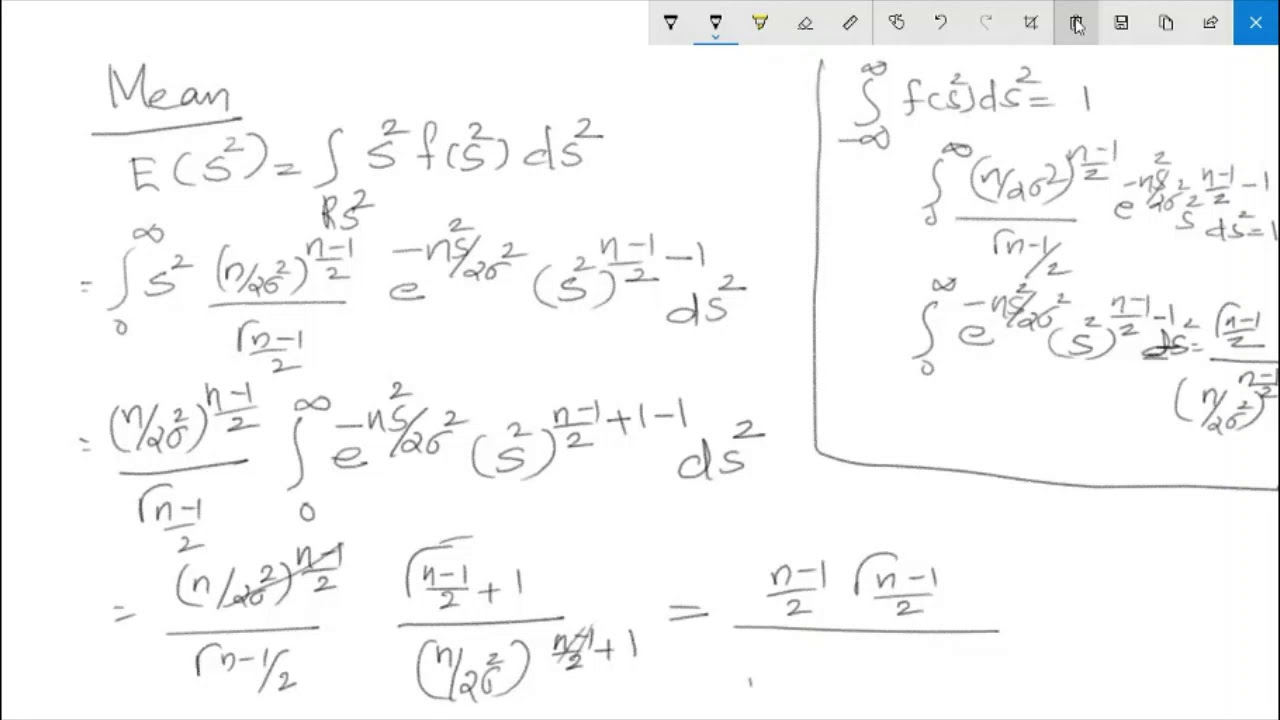 Mean
E(S²) = ∫_{R_{S²}} S² f(S²) dS²
= ∫₀^∞ S² (n/2σ²)^{(n-1)/2} / Γ(n-1)/2 e^{-nS²/2σ²} (S²)^{(n-1)/2 - 1} dS²
= (n/2σ²)^{(n-1)/2} / Γ(n-1)/2 ∫₀^∞ e^{-nS²/2σ²} (S²)^{(n-1)/2 + 1 - 1} dS²
= (n/2σ²)^{(n-1)/2} / Γn-1/2 Γ(n-1)/2 + 1 / (n/2σ²)^{(n-1)/2 + 1} = (n-1)/2 Γ(n-1)/2
∫_{-∞}^∞ f(S²) dS² = 1
∫₀^∞ (n/2σ²)^{(n-1)/2} / Γn-1/2 e^{-nS²/2σ²} S²^{(n-1)/2 - 1} dS² = 1
∫₀^∞ e^{-nS²/2σ²} (S²)^{(n-1)/2 - 1} dS² = Γ(n-1)/2 / (n/2σ²)^{(n-1)/2}